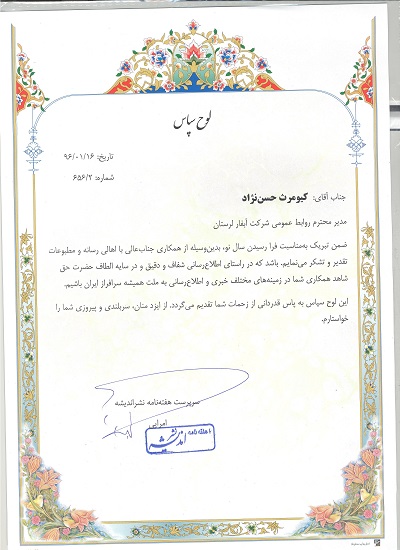 لوح سپاس
تاریخ: ۹۶/۰۱/۱۶
شماره: ۶۵۶/۲
جناب آقای: کیومرث حسن‌نژاد
مدیر محترم روابط عمومی شرکت آبفار لرستان
ضمن تبریک به‌مناسبت فرا رسیدن سال نو، بدین‌وسیله از همکاری جناب‌عالی با اهالی رسانه و مطبوعات
تقدیر و تشکر می‌نمایم. باشد که در راستای اطلاع‌رسانی شفاف و دقیق و در سایه الطاف حضرت حق
شاهد همکاری شما در زمینه‌های مختلف خبری و اطلاع‌رسانی به ملت همیشه سرافراز ایران باشیم.
این لوح سپاس به پاس قدردانی از زحمات شما تقدیم می‌گردد. از ایزد منان، سربلندی و پیروزی شما را
خواستارم.
سرپرست هفته‌نامه نشراندیشه
امرایی
هفته نامه
نشر
اندیشه